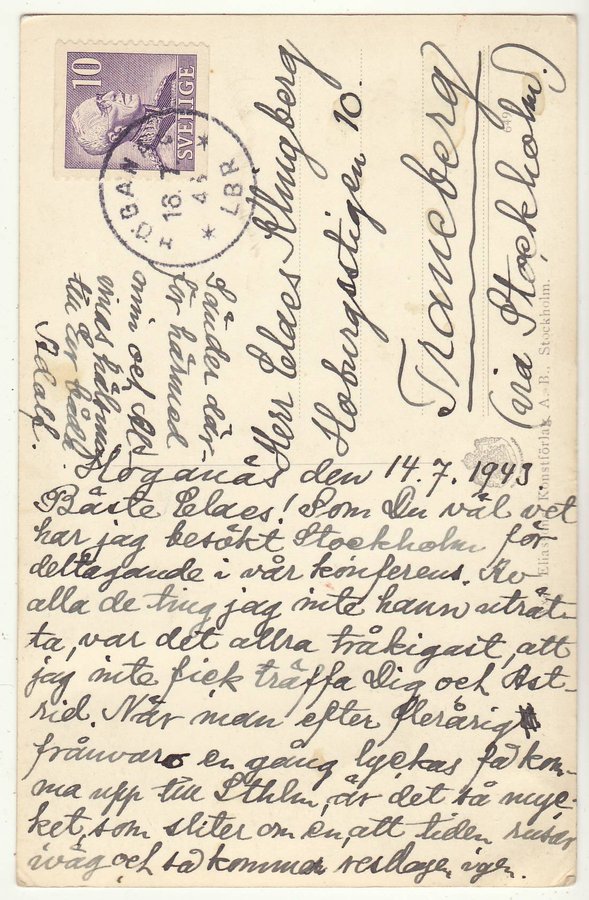 Höganäs den 14.7.1943.
Bäste Claes! Som Du väl vet
har jag besökt Stockholm för
deltagande i vår konferens. Av
alla de ting jag inte hann uträt-
ta, var det allra tråkigast, att
jag inte fick träffa Dig och Ast-
rid. När man efter flerårig
frånvaro en gång lyckas få kom-
ma upp till Sthlm, är det så myc-
ket, som sliter om en, att tiden rusar
iväg och så kommer resdagen igen.
Sänder där-
för härmed
min och
mas hälsning
till Er båda
Adolf.
Herr Claes Klingberg
Hoburgsstigen 10.
Traneberg
(via Stockholm.)
10
SVERIGE
18.7
LBR
Konstförlag A.-B., Stockholm.